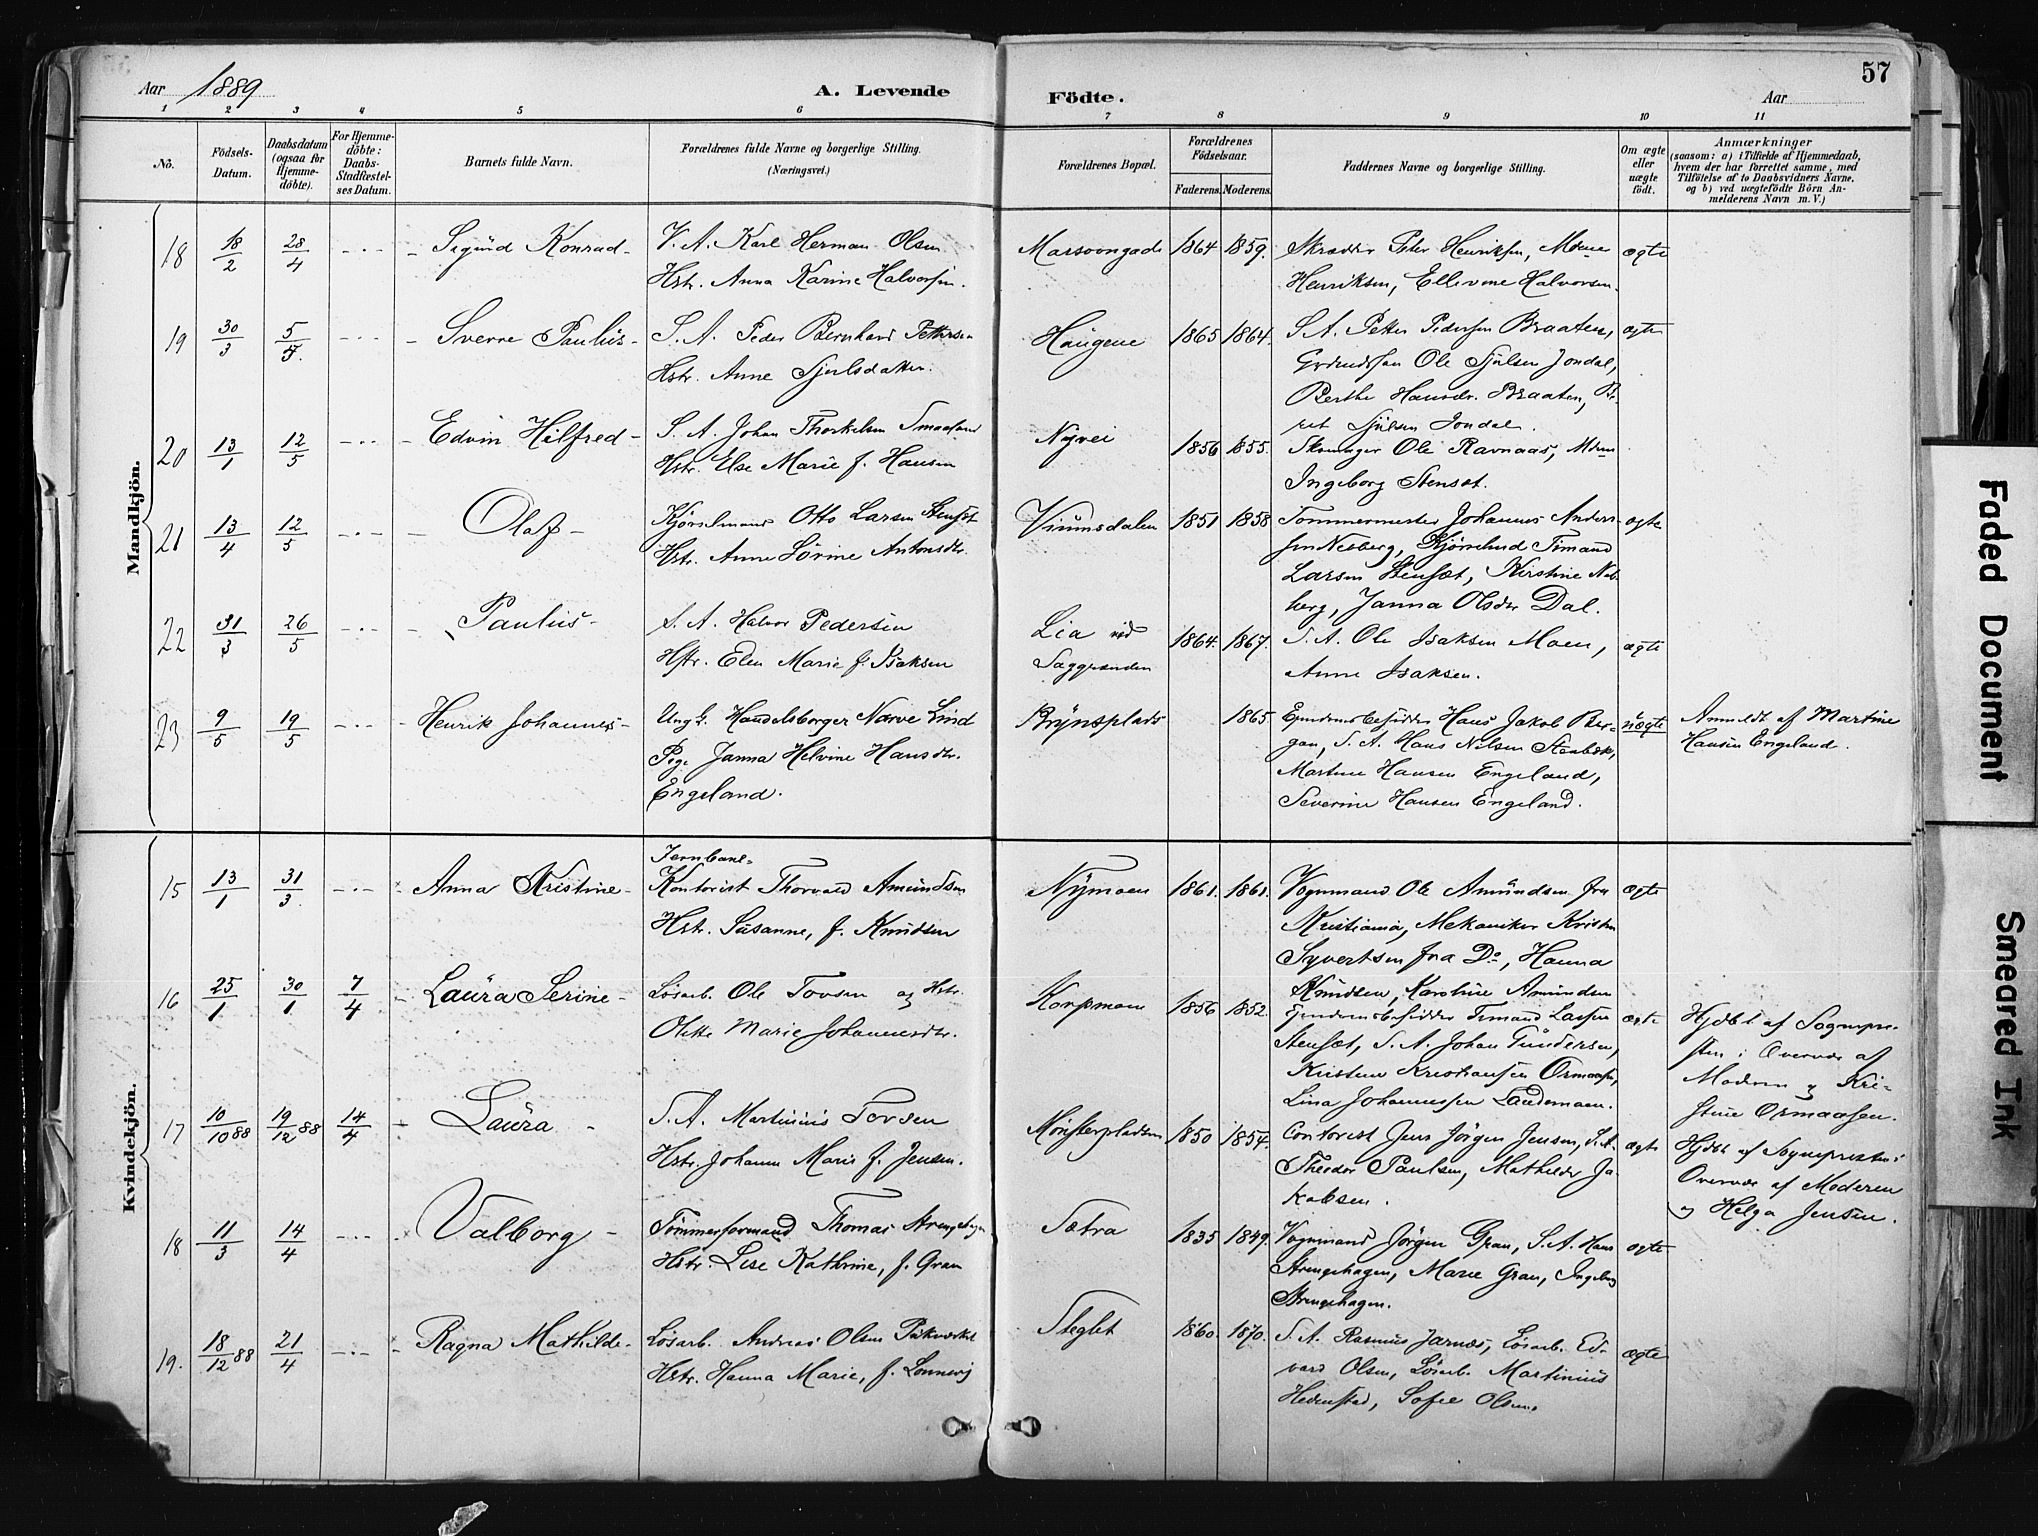 57
Aar 1889
A. Levende
Födte.
Aar
1 2 3 4 5 6 7 8 9 10 11
No.
Födsels-
Datum.
Daabsdatum
(ogsaa for
Hjemme-
döbte).
For Hjemme-
döbte:
Daabs-
Stadfæstel-
ses Datum.
Barnets fulde Navn.
Forældrenes fulde Navne og borgerlige Stilling.
(Næringsvei.)
Forældrenes Bopæl.
Forældrenes
Födselsaar.
Faderens. Moderens.
Faddernes Navne og borgerlige Stilling.
Om ægte
eller
uægte
födt.
Anmærkninger
(saasom: a) i Tilfælde af Hjemmedaab,
hvem der har forrettet samme, med
Tilföielse af to Daabsvidners Navne.
og b) ved uægtefödte Börn An-
melderens Navn m. V.)
Mandkjön.
18 18/2 28/4 Sigurd Konrad
V. A. Karl Herman Olsen
Hstr. Anna Karine Halvorsen.
1864 1859.
Skrædder Peter Henriksen,
Henriksen, Ellevine Halvorsen.
ægte
19 30/3 5/5 Sverre Paulus
S. A. Peder Bernhard Pettersen
Hstr. Anne Sjulsdatter.
Haugene 1865 1864.
S. A. Petter Pedersen Braaten,
Ole Sjulsen Jondal,
Berthe Hansdr. Braaten, Be-
ret Sjulsen Jondal.
ægte
20 13/1 12/5 Edvin Hilfred
S. A. Johan Thorkelsen Smaasund
Hstr. Else Marie f. Hansen
Nyvei 1856 1855.
Ole Ravnaas,
Ingeborg Stenset.
21 13/4 12/5 Olaf
Kjørselmand Otto Larsen Stenset
Hstr. Anne Sörine Antonsdtr.
Vinumsdalen 1851 1858
Tømmermester Johannes Anders-
sen Neberg, Timand
Larsen Stensæt, Kirstine Ne-
berg, Janna Olsdtr Dal.
ægte
22 31/3 26/5 Paulus
S. A. Halvor Pedersen
Hstr. Elen Marie f. Isaksen
Lia ved
Saggrenden
1864. 1867.
S. A. Ole Isaksen Moen,
Anne Isaksen.
ægte
23 9/5 19/5 Henrik Johannes
Ung. Handelsborger Narve Lind
Pige Janna Helvine Hansdtr.
Engeland.
Brynsplads 1865.
Eiendomsbesidder Hans Jakob Ber-
gan, S. A. Hans Nilsen Stenbæk,
Martine Hansen Engeland,
Severine Hansen Engeland.
uægte
Anmeldt af Martine
Hansen Engeland.
Kvindekjön.
15 13/1 31/3 Anna Kristine
Jernbane-
Kontorist Thorvald Amundsen
Hstr. Susanne, f. Knudsen
Nymoen 1861. 1861.
Vognmand Ole Amundsen fra
Kristiania, Mekaniker Kristen
Syvertsen fra Do, Hanna
Knudsen, Karoline Amundsen
ægte
16 25/1 30/1 7/4 Laura Serine
Løsarb. Ole Tovsen og Hstr.
Olette Marie Johannesdtr.
Korpmoen 1856 1852.
Eiendomsbesidder Timand Larsen
Stensæt, S. A. Johan Gundersen,
Kristine Kristiansen Ormaasen,
Lina Johannessen Sandemoen.
ægte
Hjdbt. af Sognepre-
sten i Overvær af
Moderen og Kri-
stine Ormaasen.
17 10/10 88 19/12 88 14/4 Laura
S. A. Martinius Tovsen
Hstr. Johanne Marie f. Jensen.
Mønsterpladsen 1850 1854.
Contorist Jens Jörgen Jensen, S. A.
Theodor Paulsen, Mathilde Ja-
kobsen.
ægte
Hjdbt af Sognepresten i
Overvær af Moderen
og Helga Jensen.
18 11/3 14/4 Valborg
Tømmerformand Thomas Strengehagen
Hstr. Lise Kathrine, f. Gran
Sætra 1835 1849.
Vognmand Jörgen Gran, S. A. Hans
Strengehagen, Marie Gran, Ingeborg
Strengehagen.
ægte
19. 18/12 88 21/4 Ragna Mathilde
Løsarb. Andreas Olsen
Hstr. Hanna Marie, f. Lonnevj
Steglet 1860. 1870.
S. A. Rasmus Jarnæs, Løsarb. Ed-
vard Olsen, Løsarb. Martinius
Hedenstad, Sofie Olsen.
ægte
Faded Document
Smeared Ink